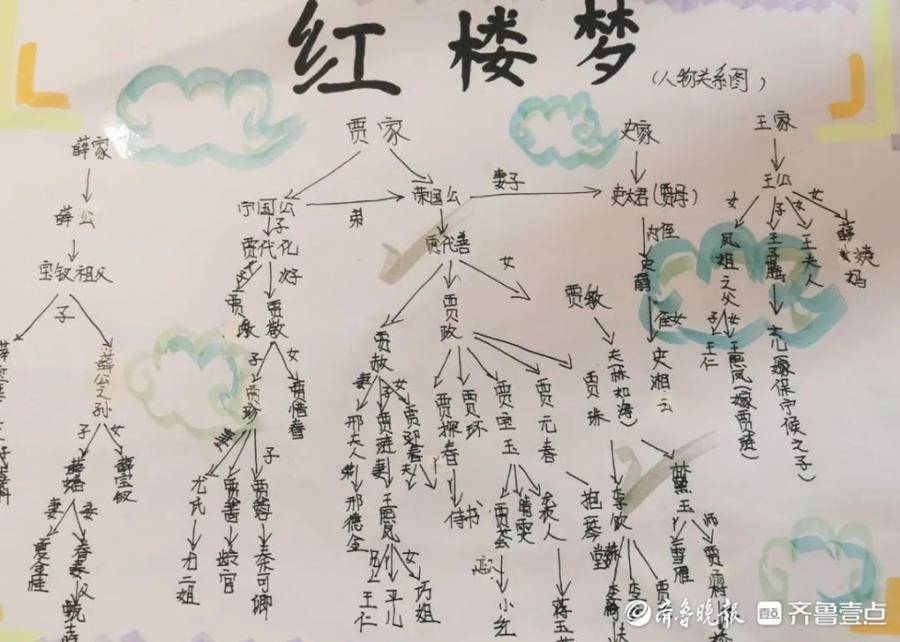 红楼梦
(人物关系图)
薛家
贾家
史家
王家
薛公
宁国公
弟
荣国公
妻子
史太君(贾母)
王公
宝钗祖父
子
贾代化
贾代善
女
内侄
女
子
女
女
好
凤姐之父
王子腾
王夫人
薛姨妈
子
贾敷
贾敬
贾政
贾敏
史鼐
侄女
子
女
王仁
王熙凤(嫁贾琏)
女儿(嫁保宁侯之子)
薛公之孙
子
女
贾珍
贾惜春
贾赦
妻
子
女
夫(林如海)
史湘云
子
女
妻
子
邢夫人
弟
邢德全
贾琏
妻
王熙凤
贾迎春
夫
贾探春
侍书
贾环
贾宝玉
贾元春
贾珠
薛蟠
薛宝钗
妻
妾
尤氏
尤二姐
贾蔷
龄官
贾蓉
秦可卿
兄
王仁
平儿
女
巧姐
贾芸
小红
晴雯
袭人
抱琴
李纨
林黛玉
雪雁
师
夏金桂
香菱
齐鲁晚报
壹点
齐鲁壹点